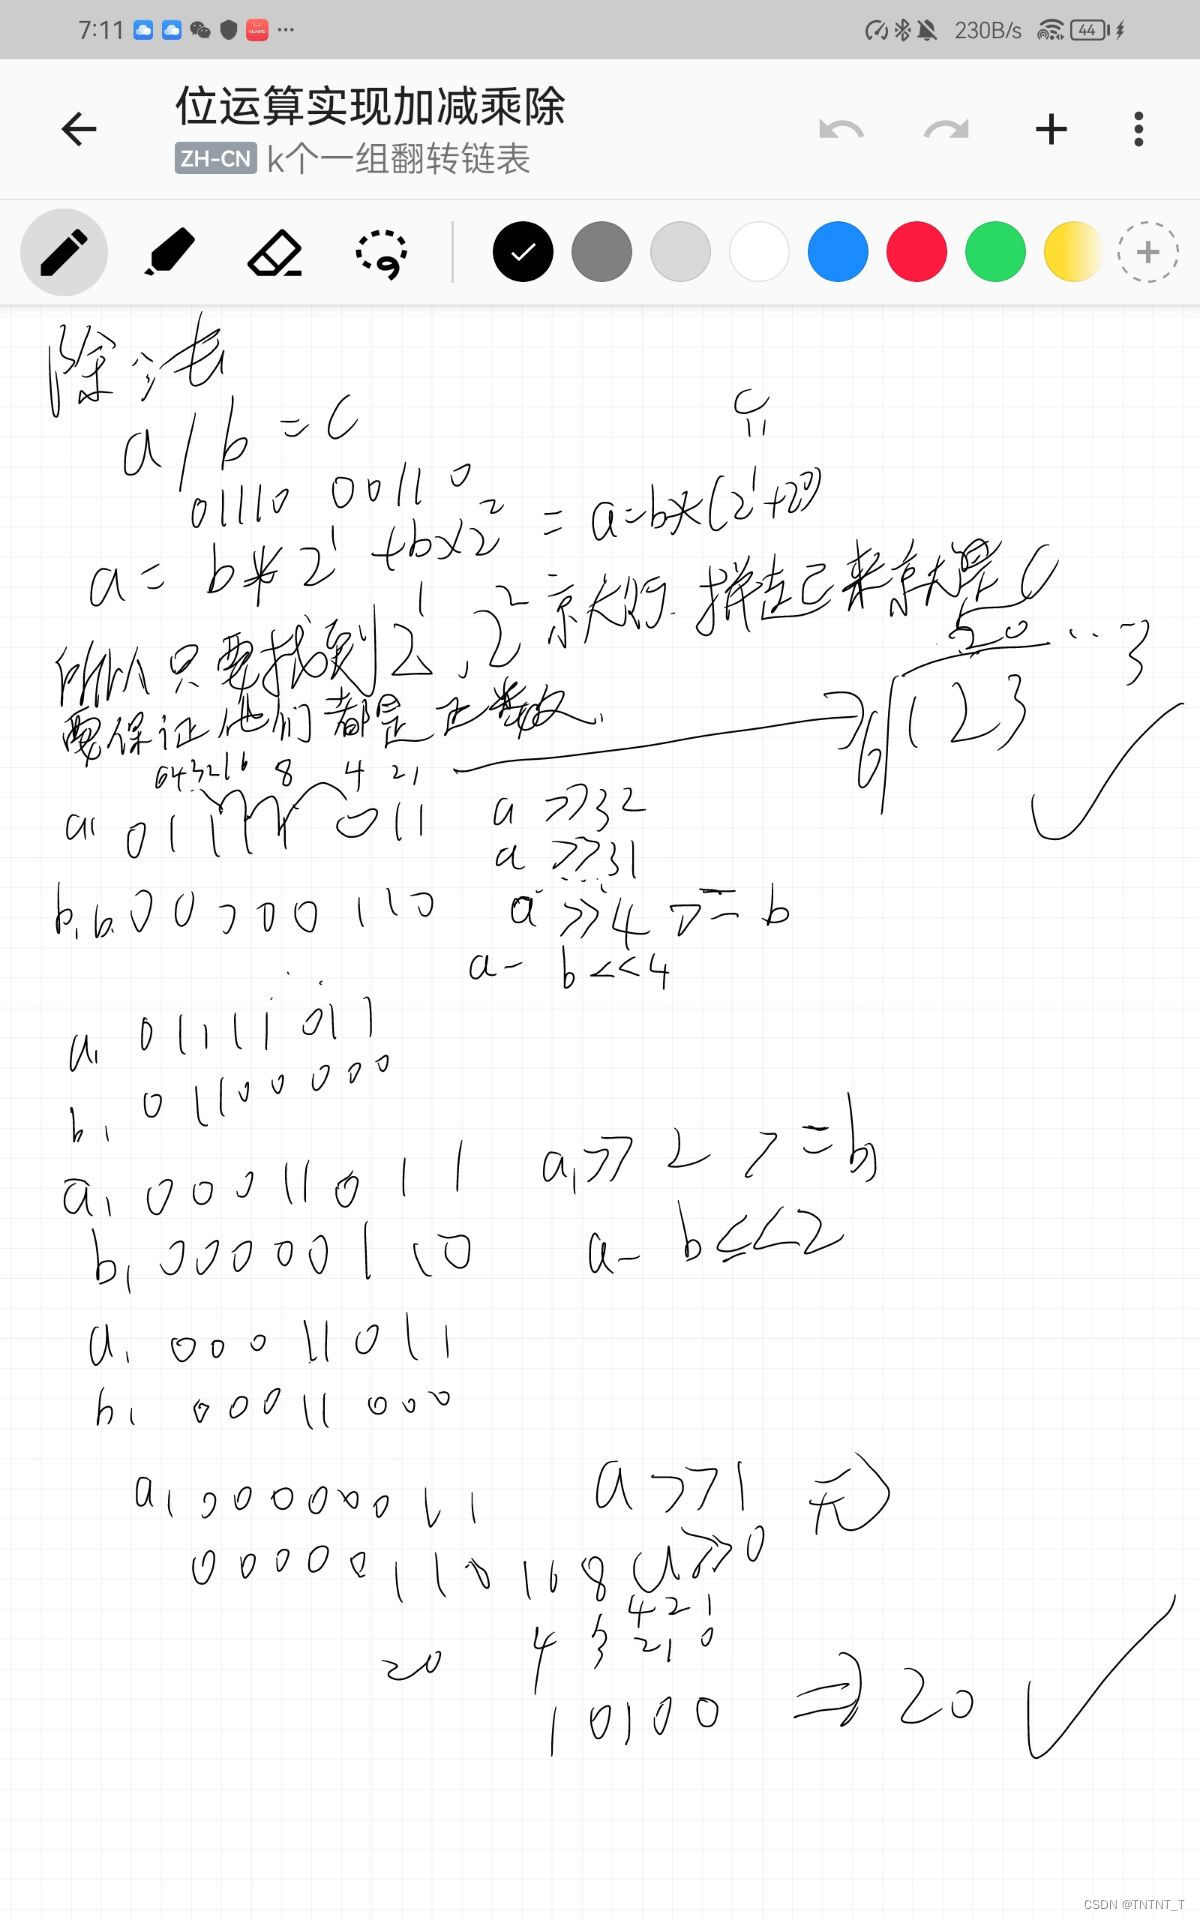 7:11 230B/s 44
位运算实现加减乘除
ZH-CN k个一组翻转链表
除法
a/b=c
c
=
01110 00110
a= b*2¹+b×2² = a=b*(2¹+2⁰)
所以只要找到2¹,2²就行.拼起来就是C
要保证他们都是正数.
20…3
6 123
64 32 16 8 4 2 1
a, 01111011 a>>32
a>>31
...
b, b, 00000110 a>>4 >= b
a- b<<4
a, 01111011
b, 01100000
a, 00011011 a,>>2 >=b,
b, 00000110 a- b<<2
a, 00011011
b, 00011000
a, 00000011 a>>1 无
00000110 16 8 a>>0
4 2 1
20 4 3 2 1 0
10100 => 20
CSDN @TNTNT_T